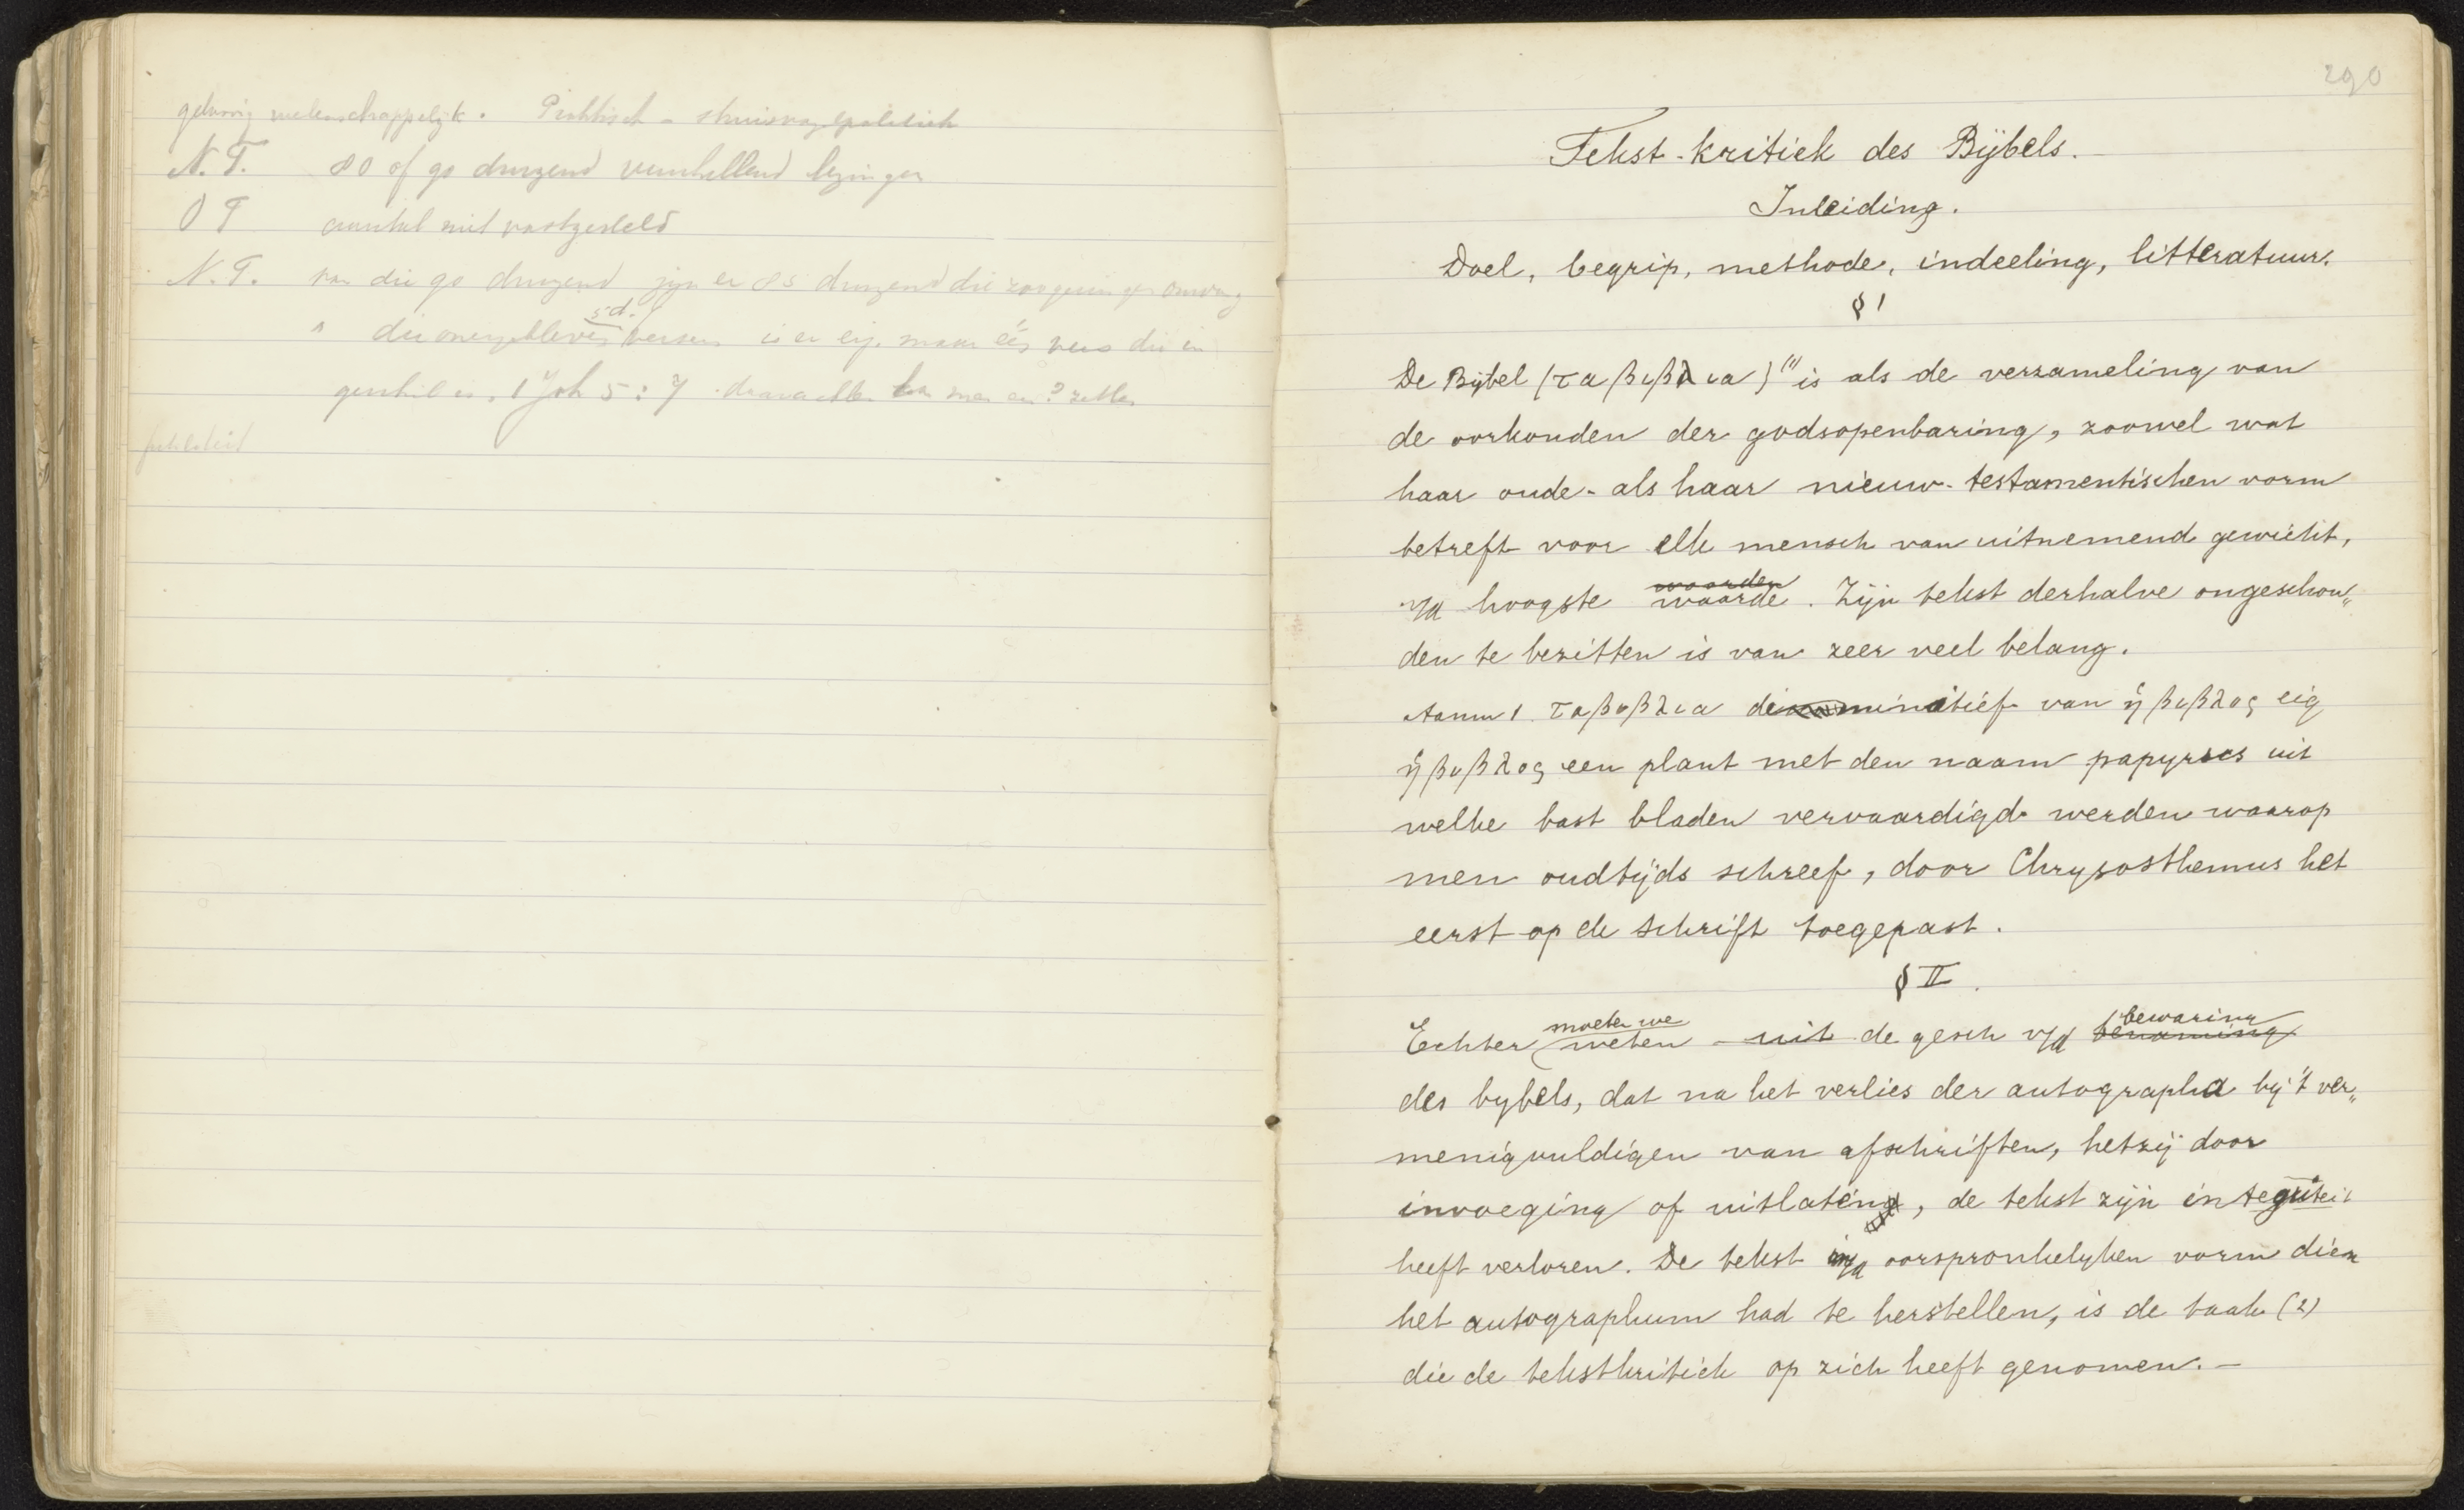 wetenschappelijk. Praktisch - struisvogelpolitiek
N.T. 80 of 90 duizend verschillend lezingen
O T aantal niet vastgesteld
N.T. van die 90 duizend zijn er 85 duizend die zoo gering van omvang
5 d.
die overgebleven verzen is er eig. maar één vers die in
geschil is, 1 Joh 5:7 daarachter kan men een ? zetten
290
Tekst-kritiek des Bijbels.
Inleiding.
Doel, begrip, methode, indeeling, litteratuur.
§ 1
De Bijbel (τα βιβλια)(1) is als de verzameling van
de oorkonden der godsopenbaring, zoowel wat
haar oude- als haar nieuw-testamentischen vorm
betreft voor elk mensch van uitnemend gewicht,
v/d hoogste waarde. Zijn tekst derhalve ongeschon„
den te bezitten is van zeer veel belang.
Aanm 1. τα βυβλια diminutief van ἡ βιβλος eig
ἡ βυβλος een plant met den naam papyrus uit
welke bast bladen vervaardigd werden waarop
men oudtijds schreef, door Chrysosthemus het
eerst op de schrift toegepast.
§ II.
moeten we bewaring
Echter weten - uit de gesch v/d benaming
des bybels, dat na het verlies der autographa bij 't ver„
menigvuldigen van afschriften, hetzij door
invoeging of uitlating, de tekst zijn integriteit
heeft verloren. De tekst in/d oorspronkelyken vorm dien
het autographum had te herstellen, is de taak (2)
die de tekstkritiek op zich heeft genomen. -